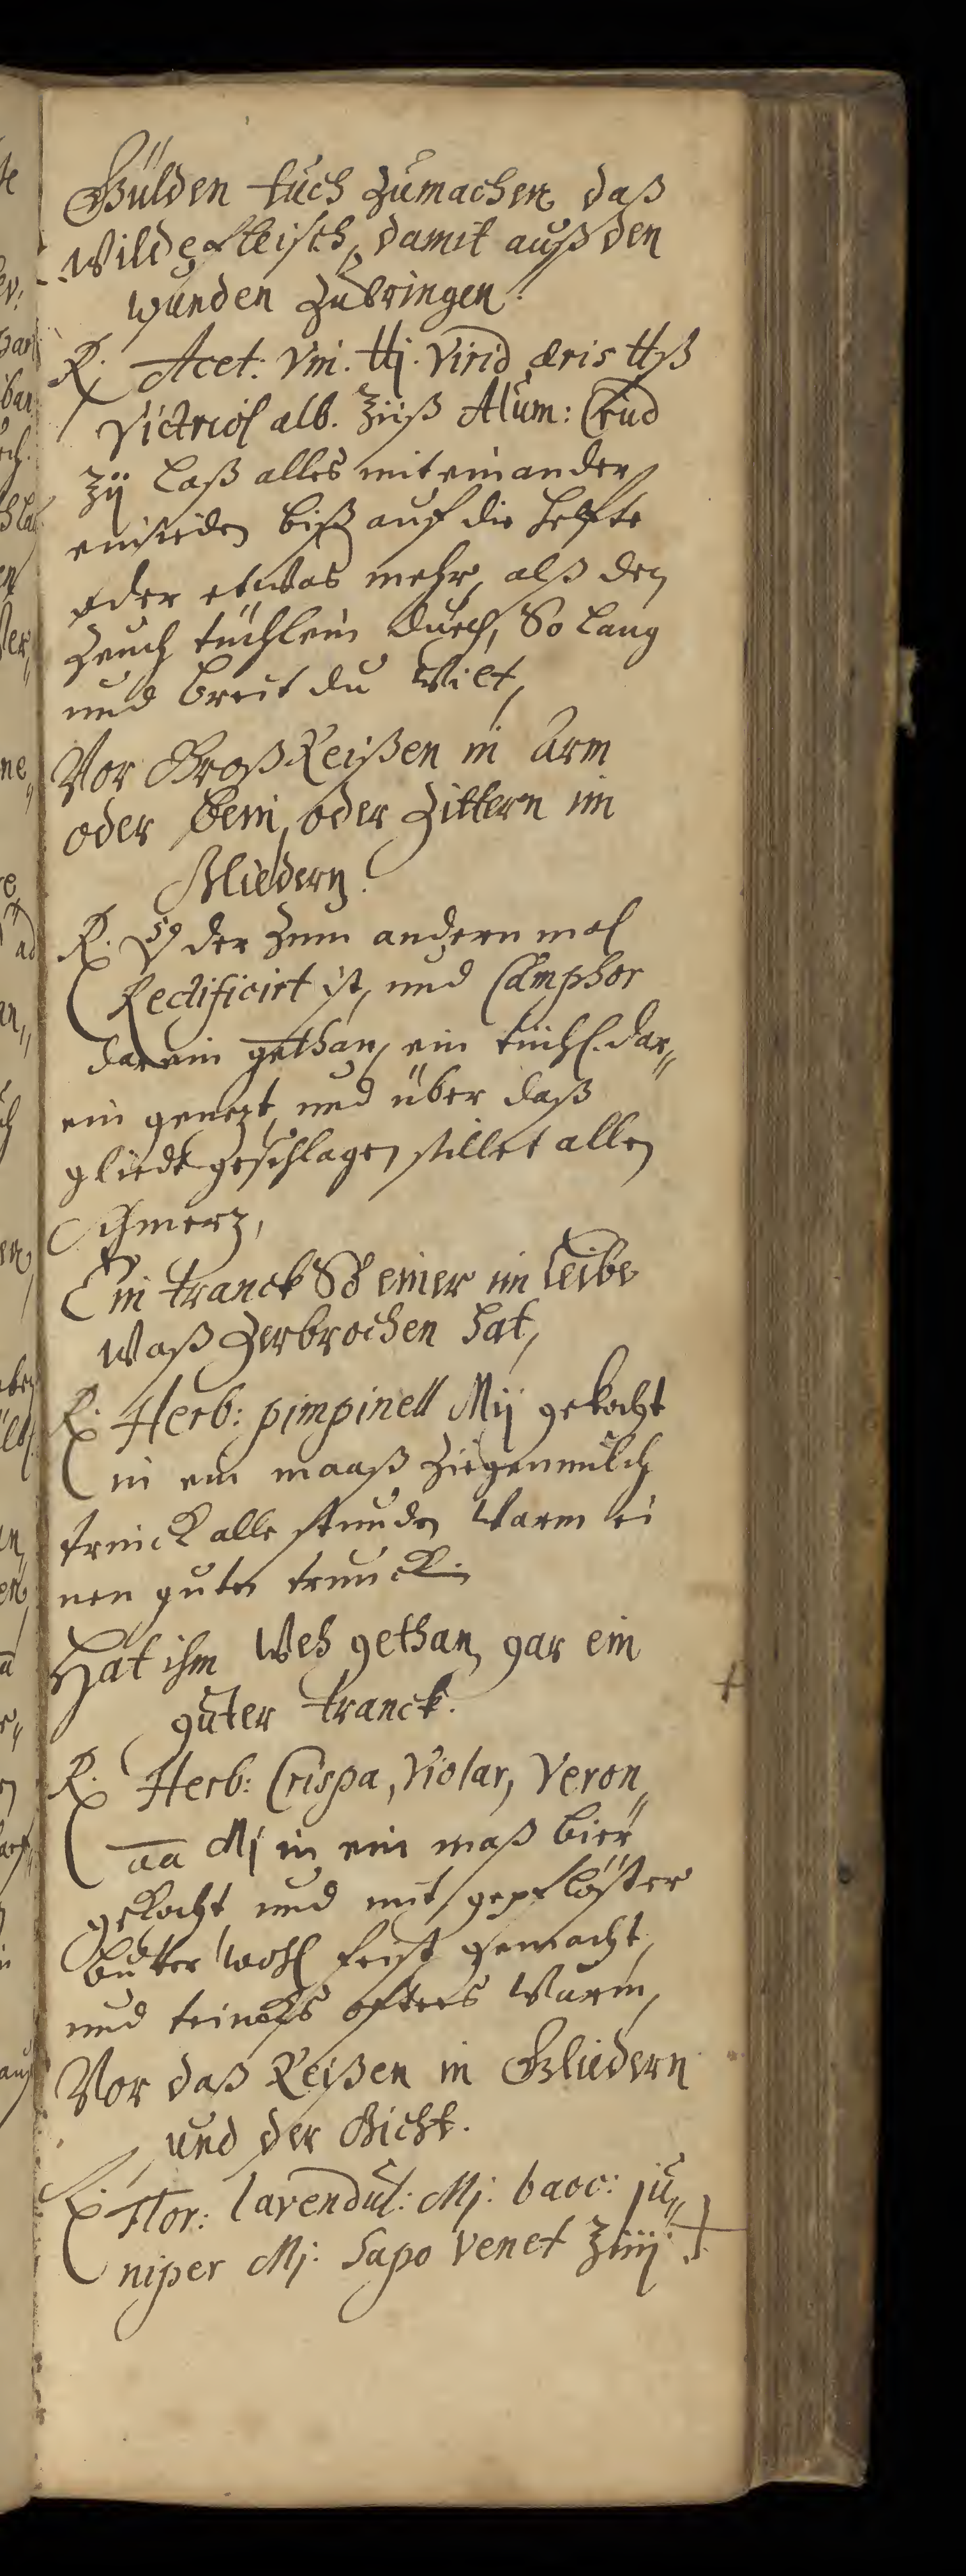 Gülden tuch zumachen, daß
wilde fleisch, damit auß den
wunden zubringen.
℞. Acet: Vin. ℔j. Virid æris ℔ß
Victriol alb. ʒiiß Alum: Crud
ʒij laß alles mit einander
einsieden biß auf die helfte
oder etwas mehr, alß den
zeuch tüchlein durch, So lang
und breit du wilt,
Vor Groß Reißen in Arm
oder bein, oder Zittern im
Gliedern.
℞. der zum andern mal
Rectificirt ist, und Camphor
darein gethan, ein tüchl. dar„
ein genezt, und über daß
gliedt geschlagen stillet allen
Schmerz,
Ein tranck So einer im leibe
waß zerbrochen hat,
℞. Herb: pimpinell Mij gekocht
in ein maaß ziegenmilch
trinck alle stunden warm ei
nen guten trunck.
Hat ihm weh gethan, gar ein
guter tranck.
℞. Herb: Crispa, Violar, Veron„
aa Mj in ein maß bier
gekocht und mit
butter wohl feist gemacht,
und trincks offters warm,
Vor daß Reißen in Gliedern
und der Gicht.
℞. Flor: lavendul: Mj: bacc: ju„
niper Mj: Sapo Venet ʒiiij